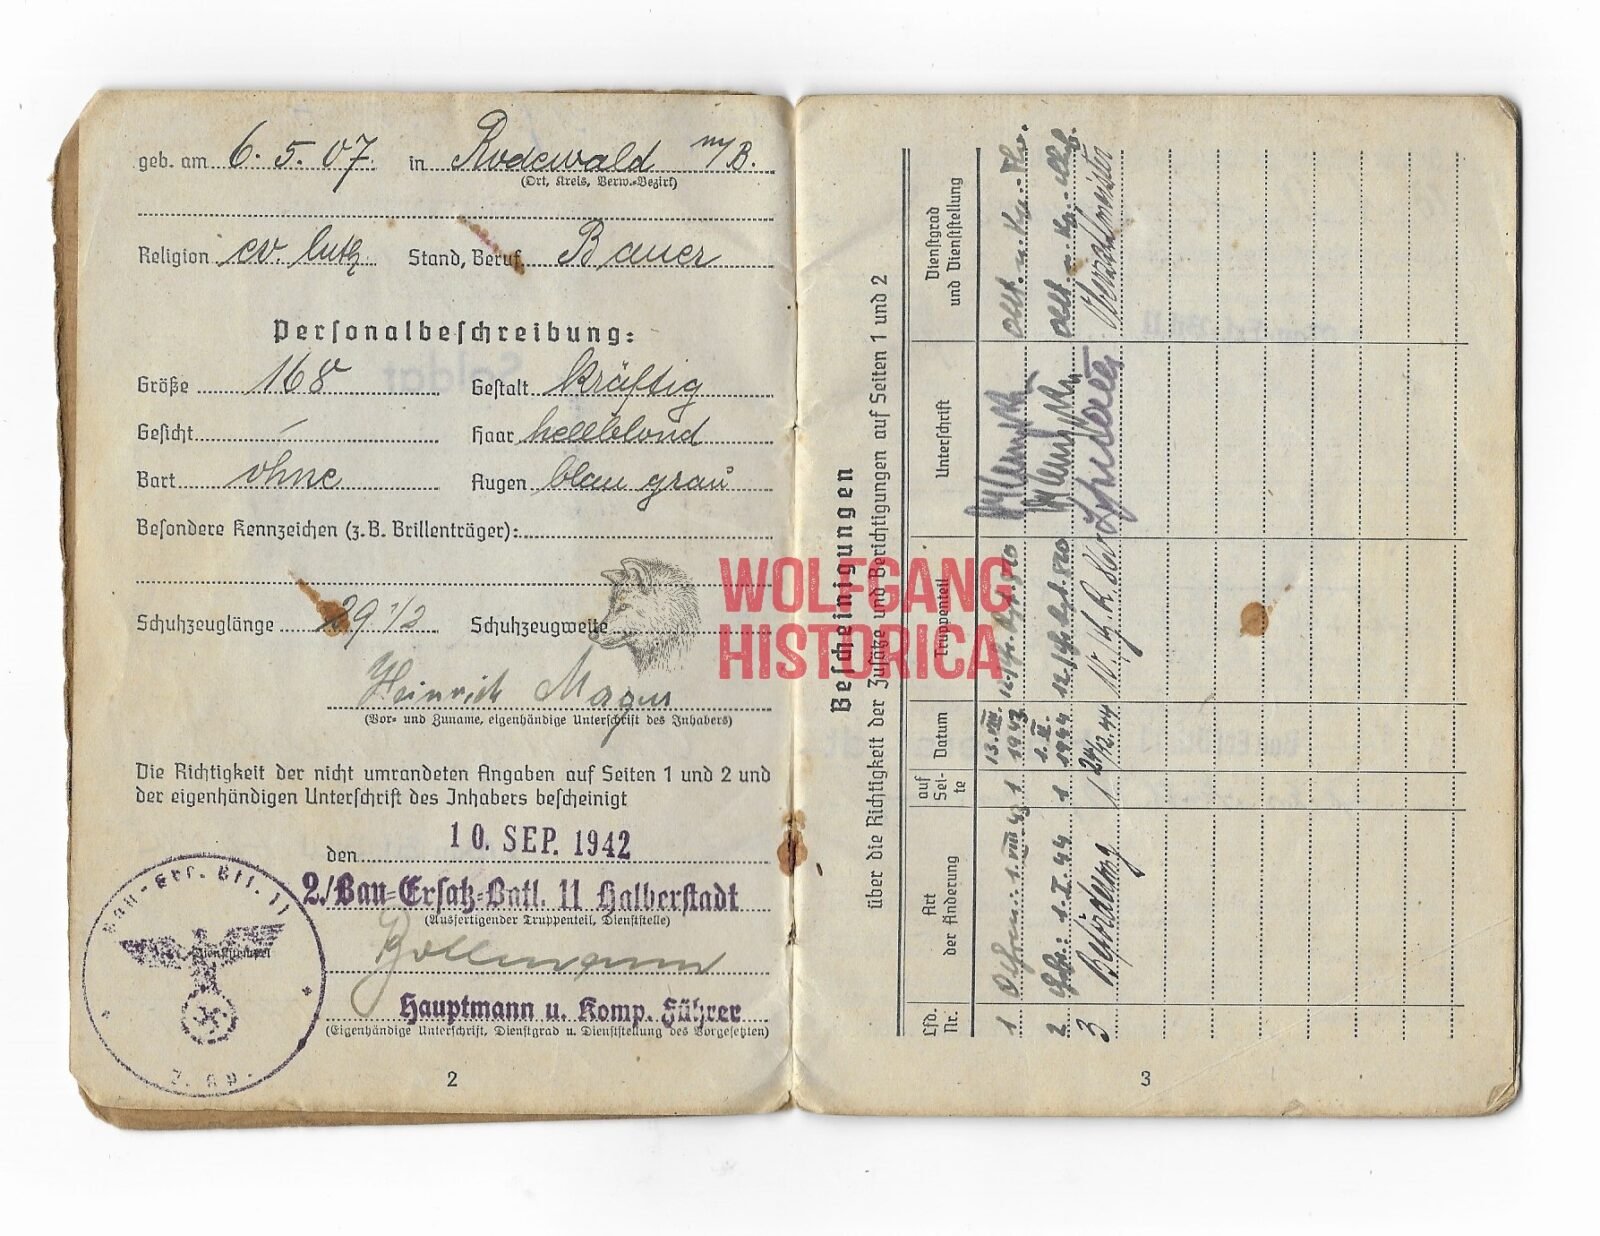 geb. am 6. 5. 07. in Rodewald m/B.
(Ort, Kreis, Verw.-Bezirk)
Religion ev. luth. Stand, Beruf Bauer
Personalbeschreibung:
Größe 168 Gestalt kräftig
Gesicht - Haar hellblond
Bart ohne Augen blau grau
Besondere Kennzeichen (z.B. Brillenträger):
Schuhzeuglänge 29 1/2 Schuhzeugweite
Heinrich
(Vor- und Zuname, eigenhändige Unterschrift des Inhabers)
Die Richtigkeit der nicht umrandeten Angaben auf Seiten 1 und 2 und
der eigenhändigen Unterschrift des Inhabers bescheinigt
den 10. SEP. 1942
2./Bau-Ersatz-Batl. 11 Halberstadt
(Ausfertigender Truppenteil, Dienststelle)
Bollmann
Hauptmann u. Komp. Führer
(Eigenhändige Unterschrift, Dienstgrad u. Dienststellung des Vorgesetzten)
Bau-Ers. Btl. 11
2. Kp.
2
WOLFGANG
HISTORICA
Bescheinigungen
über die Richtigkeit der Zusätze und Berichtigungen auf Seiten 1 und 2
Lfd. Nr.
Art der Änderung
auf Seite
Datum
Truppenteil
Unterschrift
Dienstgrad und Dienststellung
1 1 13.VIII. 1943
2 1.I.44 1 1944
3 Beförderung 1 Oberzahlmeister
3